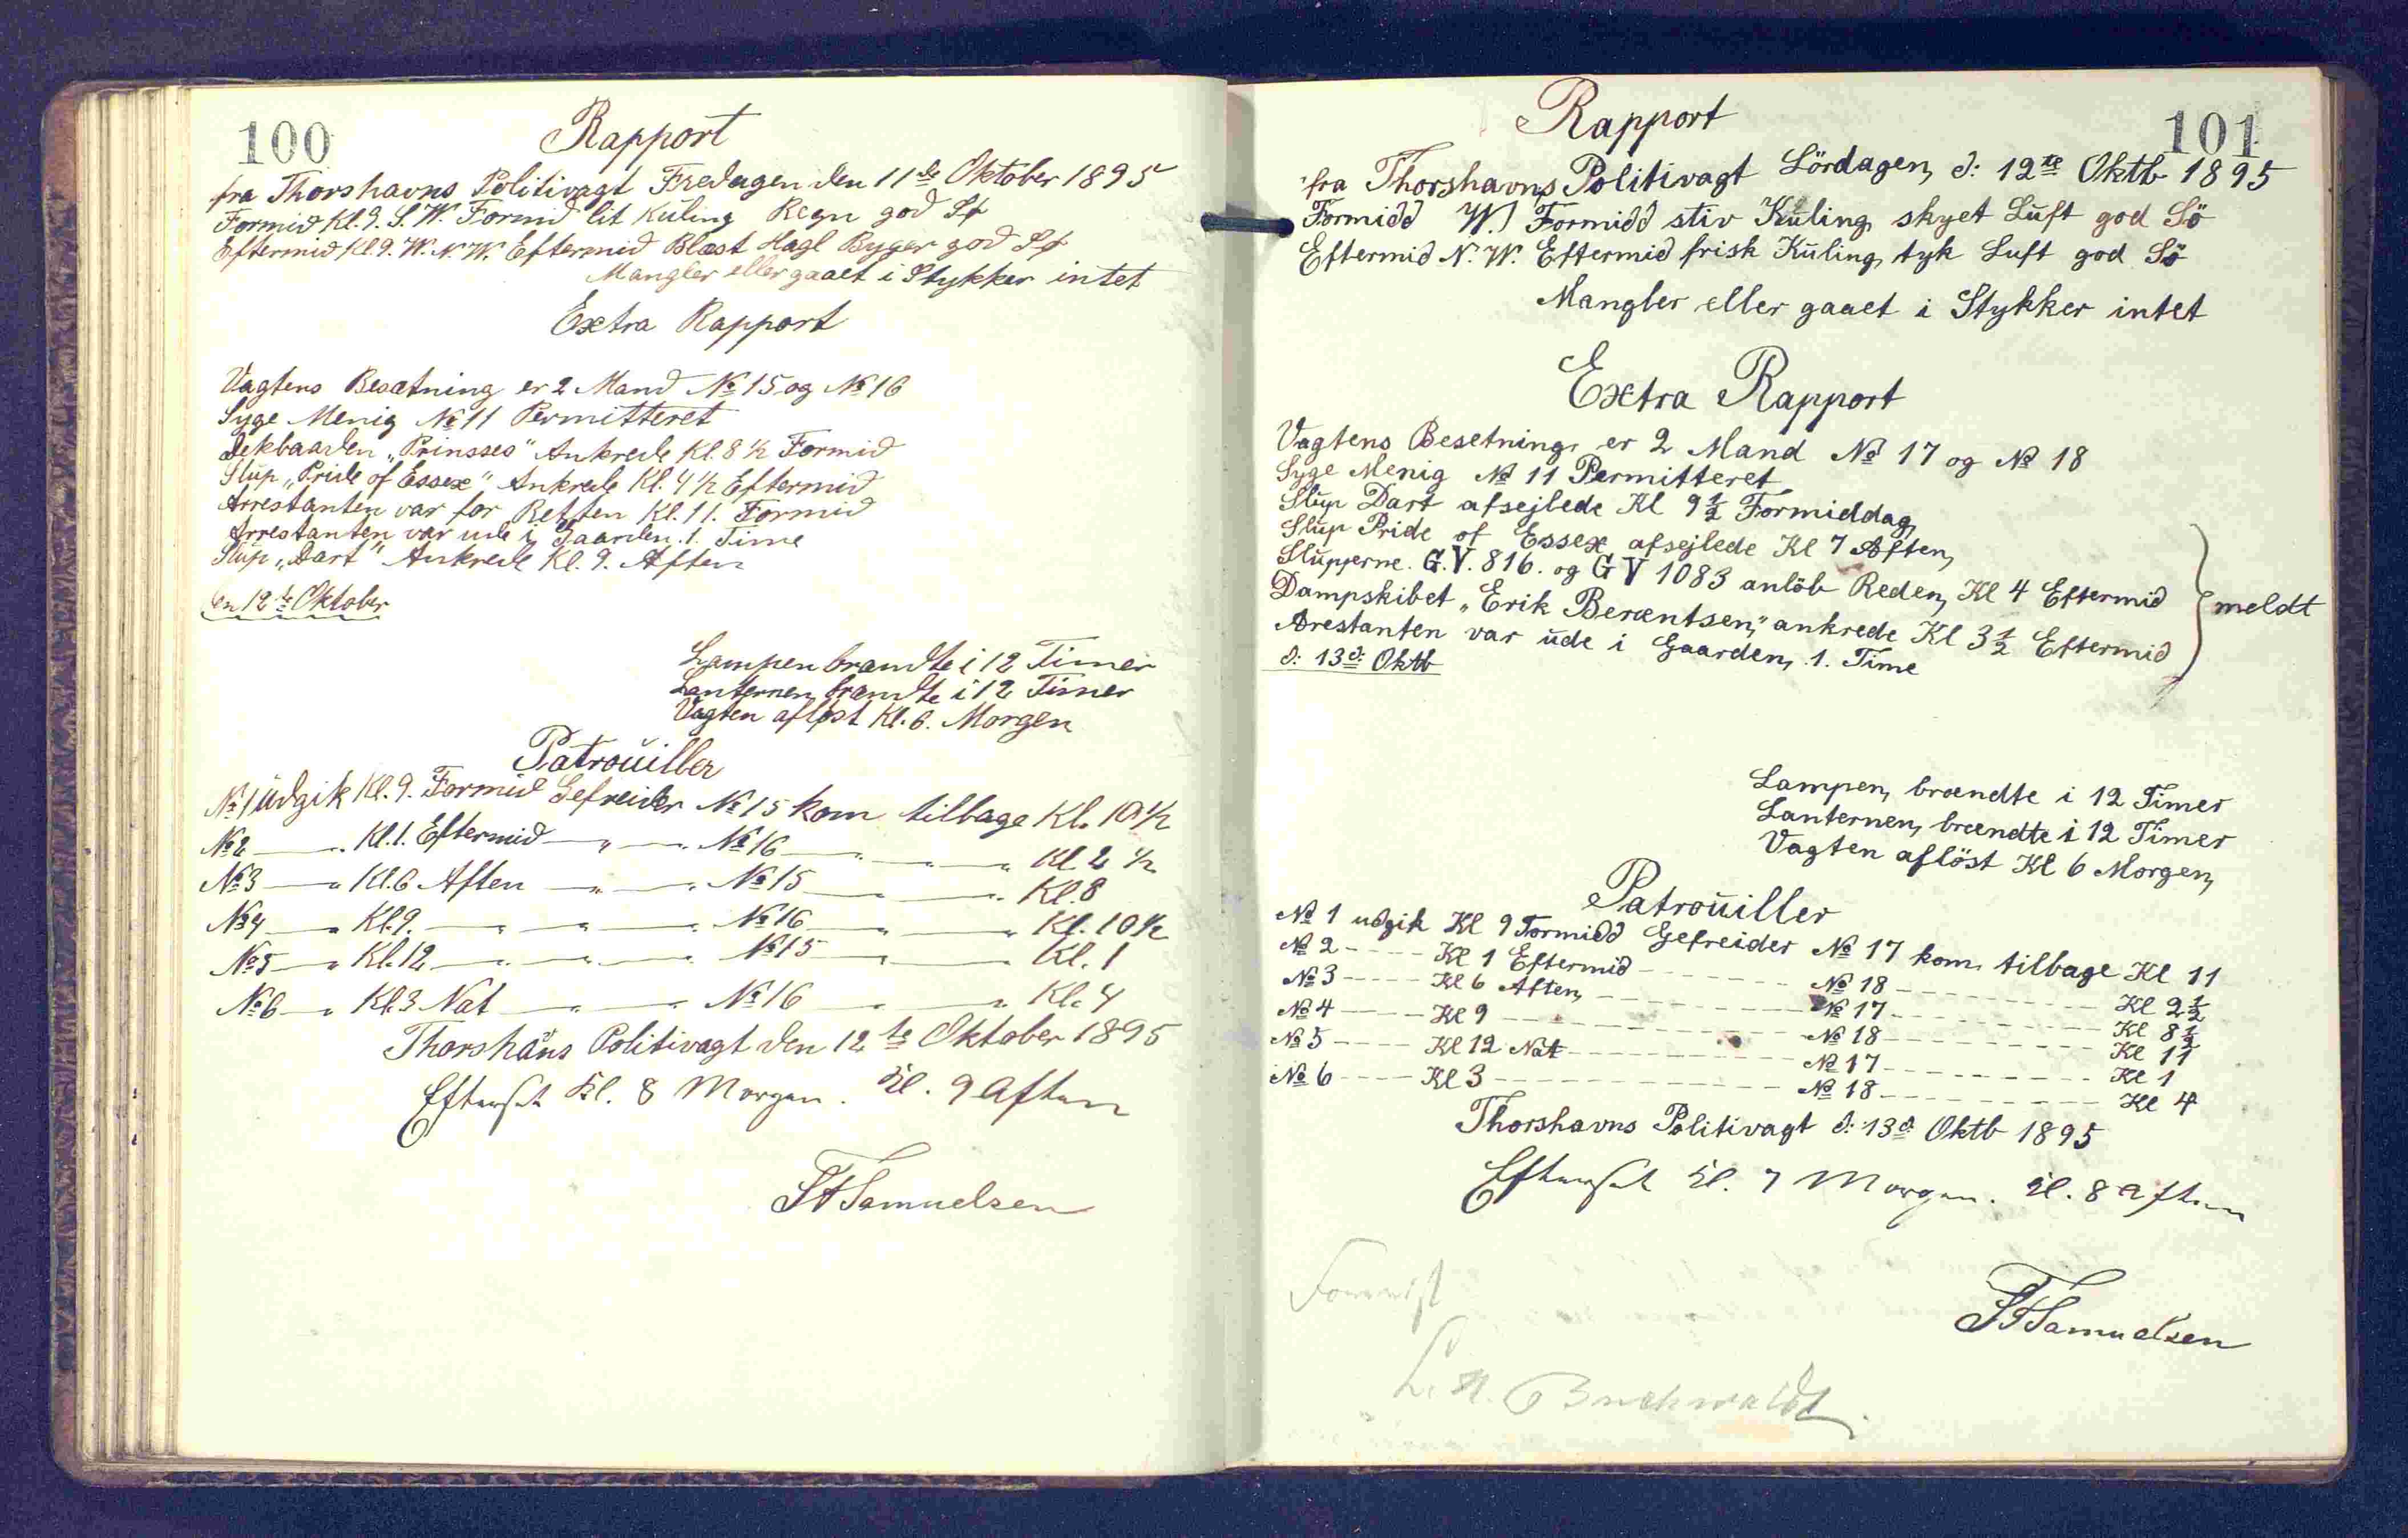 100
Rapport
fra Thorshavns Politivagt Fredagen den 11te Oktober 1895
Formid Kl. 9. S. W. Formid lit Kuling Regn god Sø
Eftermid Kl. 9. W. N. W. Eftermid Blæst Hagl Byger god Sø
Mangler eller gaaet i Stykker intet
Extra Rapport
Vagtens Besætning er 2 Mand No 15 og No 16
Syge Menig No 11 Permitteret
Dekbaaden „Prinsses" Ankrede Kl. 8 1/2 Formid
Slup „Pride of Essex" Ankrede Kl. 4 1/2 Eftermid
Arrestanten var for Retten Kl. 11. Formid
Arrestanten var ude i Gaarden. 1. Time
Slup „Dart" Ankrede Kl. 9. Aften
en 12te Oktober
Lampen brændte i 12 Timer
Lanternen brændte i 12 Timer
Vagten afløst Kl. 6. Morgen
Patrouiller
No 1 udgik Kl. 9. Formid Gefreider No 15 kom tilbage Kl. 10 1/2
No 2 — „ Kl. 1. Eftermid — „ — No 16 — „ — „ Kl 2 1/2
No 3 — „ Kl. 6 Aften — „ — No 15 — „ — „ Kl. 8
No 4 — „ Kl. 9. — „ — „ — No 16 — „ — „ Kl. 10 1/2
No 5 — „ Kl. 12 — „ — „ — No 15 — „ — „ Kl. 1
No 6 — „ Kl. 3 Nat — „ — No 16 — „ — „ Kl. 4
Thorshåns Politivagt den 12te Oktober 1895
Efterset Kl. 8 Morgen. Kl. 9 Aften
Samuelsen
101
Rapport
fra Thorshavns Politivagt Lördagen, d: 12te Oktb 1895
Formidd W. Formidd stiv Kuling, skyet Luft god Sö
Eftermid N. W. Eftermid frisk Kuling, tyk Luft god Sö
Mangler eller gaaet i Stykker intet
Extra Rapport
Vagtens Besetning er 2 Mand No 17 og No 18
Syge Menig No 11 Permitteret
Slup Dart afsejlede Kl 9 1/2 Formiddag,
Slup Pride of Essex afsejlede Kl 7 Aften,
Slupperne. G.V. 816. og G V 1083 anlöb Reden, Kl 4 Eftermid
Dampskibet „Erik Berentsen," ankrede Kl 3 1/2 Eftermid
meldt
Arestanten var ude i Gaarden, 1. Time
d: 13d: Oktb
Lampen, brændte i 12 Timer
Lanternen, brændte i 12 Timer
Vagten aflöst Kl 6 Morgen,
Patrouiller
No 1 udgik Kl 9 Formidd Gefreider No 17 kom tilbage Kl 11
No 2 - - - - Kl 1 Eftermid - - - - No 18 - - - - Kl 2 1/2
No 3 - - - - Kl 6 Aften, - - - - No 17 - - - - Kl 8 1/2
No 4 - - - - Kl 9 - - - - No 18 - - - - Kl 11
No 5 - - - - Kl 12 Nat - - - - No 17 - - - - Kl 1
No 6 - - - - Kl 3 - - - - No 18 - - - - Kl 4
Thorshavns Politivagt d: 13d: Oktb 1895
Efterset Kl. 7 Morgen. Kl. 8 Aften
Samuelsen
Buchwaldt